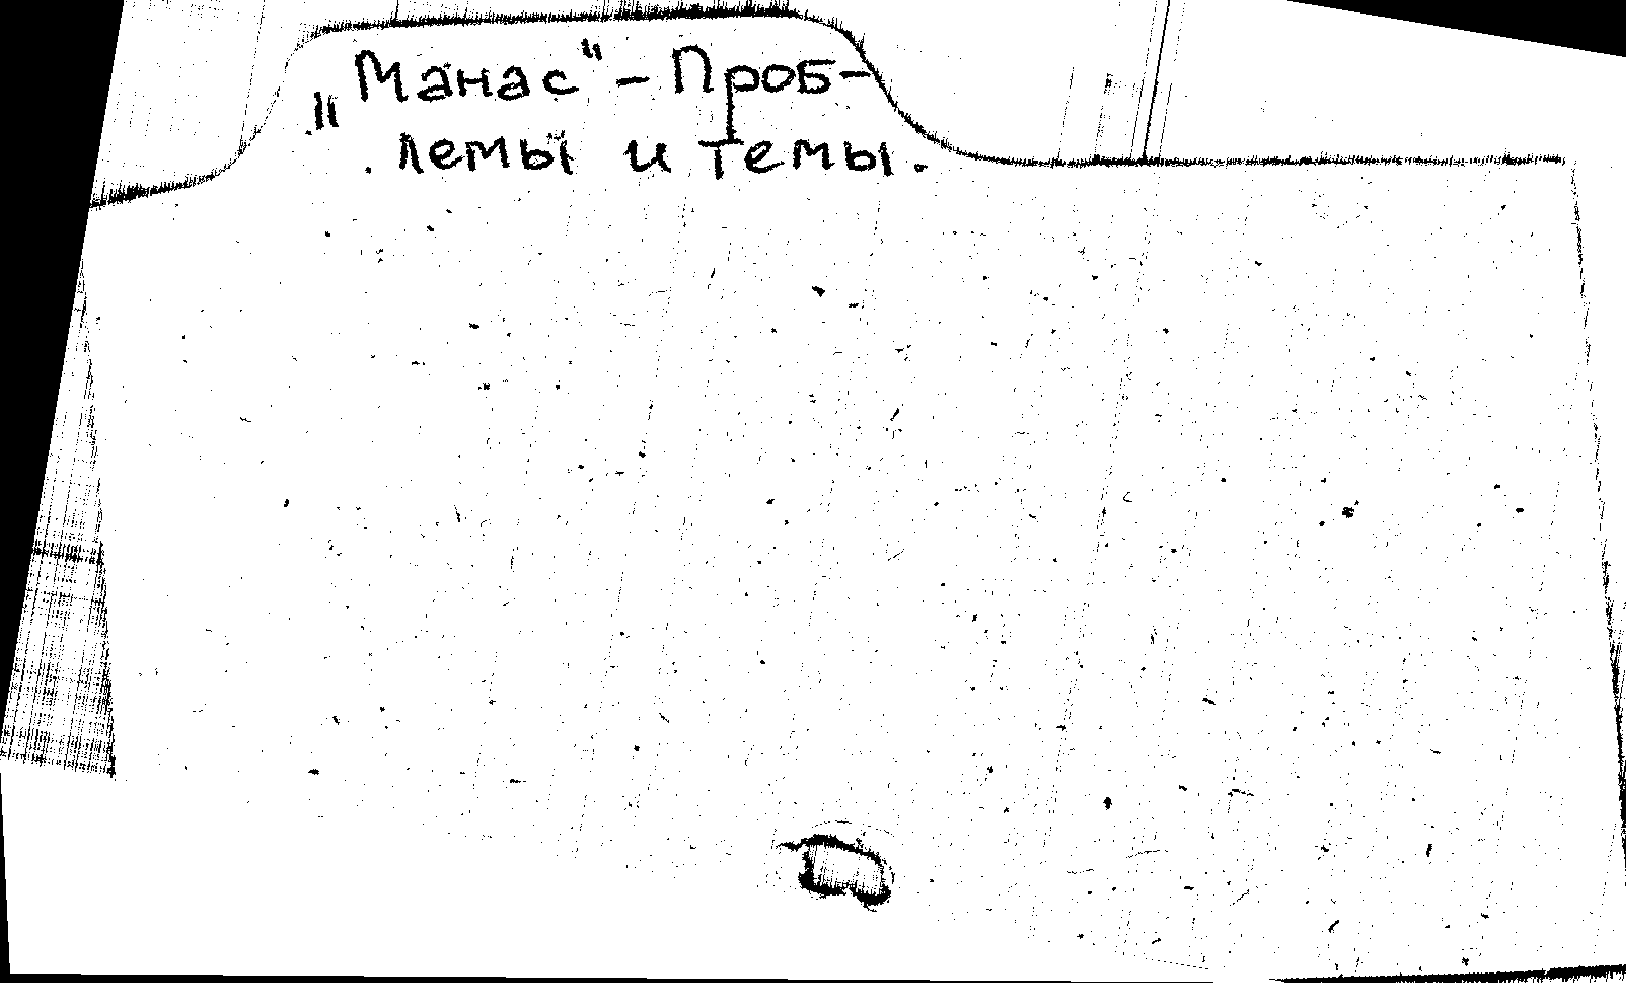 „Манас“ – Проб-
лемы и темы.